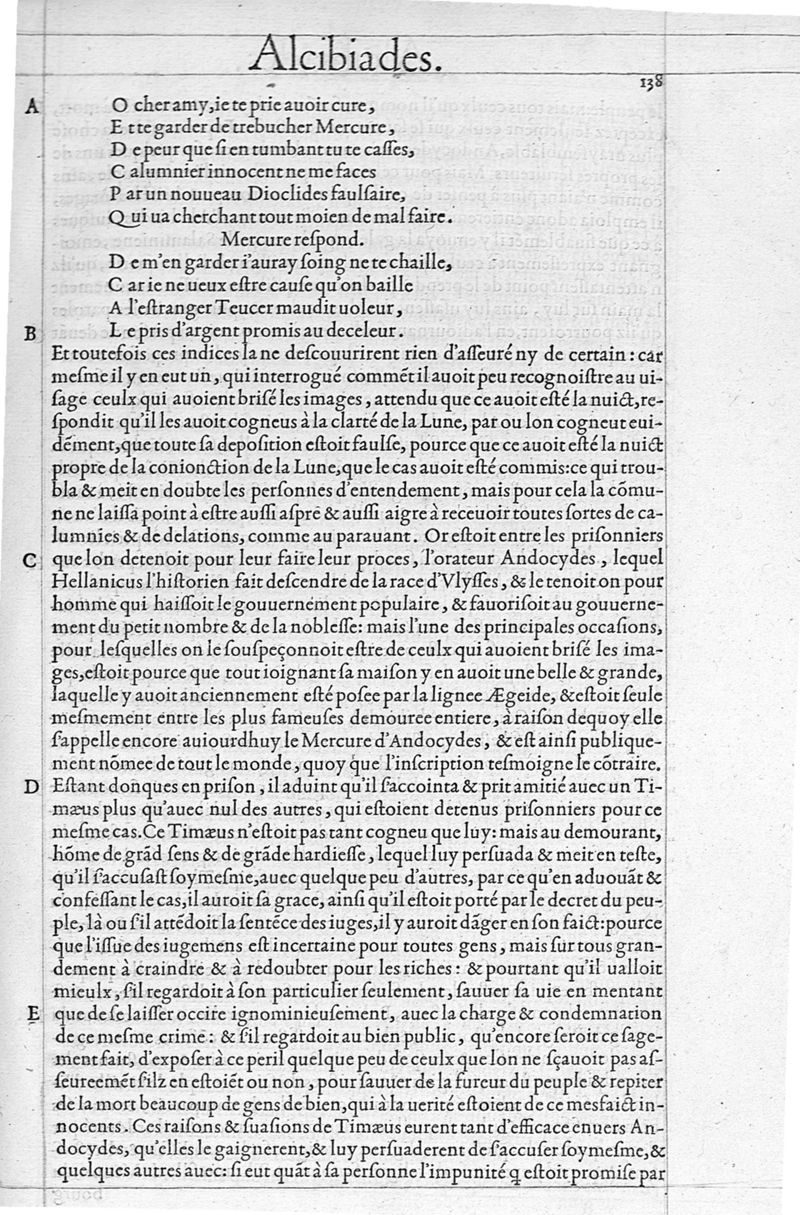 Alcibiades.
138
A O cher amy, ie te prie auoir cure,
E t te garder de trebucher Mercure,
D e peur que ſi en tumbant tu te caſſes,
C alumnier innocent ne me faces
P ar un nouueau Dioclides faulſaire,
Q ui ua cherchant tout moien de mal faire.
Mercure reſpond.
D e m'en garder i'auray ſoing ne te chaille,
C ar ie ne ueux eſtre cauſe qu'on baille
A l'eſtranger Teucer maudit uoleur,
B L e pris d'argent promis au deceleur.
Et toutefois ces indices la ne deſcouurirent rien d'aſſeuré ny de certain: car
meſme il y en eut un, qui interrogué commēt il auoit peu recognoiſtre au ui-
ſage ceulx qui auoient briſé les images, attendu que ce auoit eſté la nuict, re-
ſpondit qu'il les auoit cogneus à la clarté de la Lune, par ou lon cogneut eui-
dēment, que toute ſa depoſition eſtoit faulſe, pource que ce auoit eſté la nuict
propre de la conionction de la Lune, que le cas auoit eſté commis: ce qui trou-
bla & meit en doubte les perſonnes d'entendement, mais pour cela la cōmu-
ne ne laiſſa point à eſtre auſſi aſpre & auſſi aigre à receuoir toutes ſortes de ca-
lumnies & de delations, comme au parauant. Or eſtoit entre les priſonniers
C que lon detenoit pour leur faire leur proces, l'orateur Andocydes, lequel
Hellanicus l'hiſtorien fait deſcendre de la race d'Vlyſſes, & le tenoit on pour
homme qui haiſſoit le gouuernement populaire, & fauoriſoit au gouuerne-
ment du petit nombre & de la nobleſſe: mais l'une des principales occaſions,
pour leſquelles on le ſouſpeçonnoit eſtre de ceulx qui auoient briſé les ima-
ges, eſtoit pource que tout ioignant ſa maiſon y en auoit une belle & grande,
laquelle y auoit anciennement eſté poſee par la lignee Ægeide, & eſtoit ſeule
meſmement entre les plus fameuſes demouree entiere, à raiſon dequoy elle
s'appelle encore auiourdhuy le Mercure d'Andocydes, & eſt ainſi publique-
ment nōmee de tout le monde, quoy que l'inſcription teſmoigne le cōtraire.
D Eſtant donques en priſon, il aduint qu'il s'accointa & prit amitié auec un Ti-
mæus plus qu'auec nul des autres, qui eſtoient detenus priſonniers pour ce
meſme cas. Ce Timæus n'eſtoit pas tant cogneu que luy: mais au demourant,
hōme de grād ſens & de grāde hardieſſe, lequel luy perſuada & meit en teſte,
qu'il s'accuſaſt ſoymeſme, auec quelque peu d'autres, par ce qu'en aduouāt &
confeſſant le cas, il auroit ſa grace, ainſi qu'il eſtoit porté par le decret du peu-
ple, là ou s'il attēdoit la ſentēce des iuges, il y auroit dāger en ſon faict: pource
que l'iſſue des iugemens eſt incertaine pour toutes gens, mais ſur tous gran-
dement à craindre & à redoubter pour les riches: & pourtant qu'il ualloit
mieulx, s'il regardoit à ſon particulier ſeulement, ſauuer ſa uie en mentant
E que de ſe laiſſer occire ignominieuſement, auec la charge & condemnation
de ce meſme crime: & s'il regardoit au bien public, qu'encore ſeroit ce ſage-
ment fait, d'expoſer à ce peril quelque peu de ceulx que lon ne ſçauoit pas aſ-
ſeureemēt s'ilz en eſtoiēt ou non, pour ſauuer de la fureur du peuple & repiter
de la mort beaucoup de gens de bien, qui à la uerité eſtoient de ce mesfaict in-
nocents. Ces raiſons & ſuaſions de Timæus eurent tant d'efficace enuers An-
docydes, qu'elles le gaignerent, & luy perſuaderent de s'accuſer ſoymeſme, &
quelques autres auec: ſi eut quāt à ſa perſonne l'impunité q̃ eſtoit promiſe par